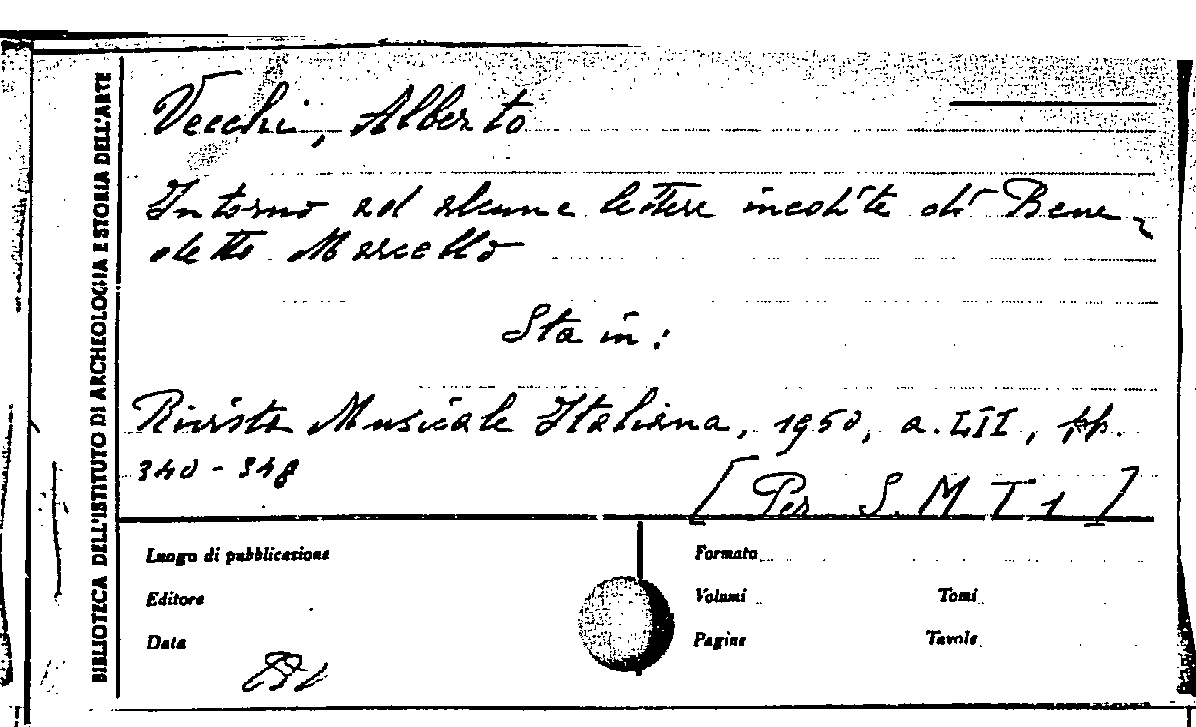 BIBLIOTECA DELL'ISTITUTO DI ARCHEOLOGIA E STORIA DELL'ARTE
Vecchi, Alberto
Intorno ad alcune lettere inedite di Bene-
detto Marcello
Sta in:
Rivista Musicale Italiana, 1950, a. LII, pp.
340-348
[Per S. M T 1]
Luogo di pubblicazione
Formato
Editore
Volumi
Tomi
Data
Pagine
Tavole